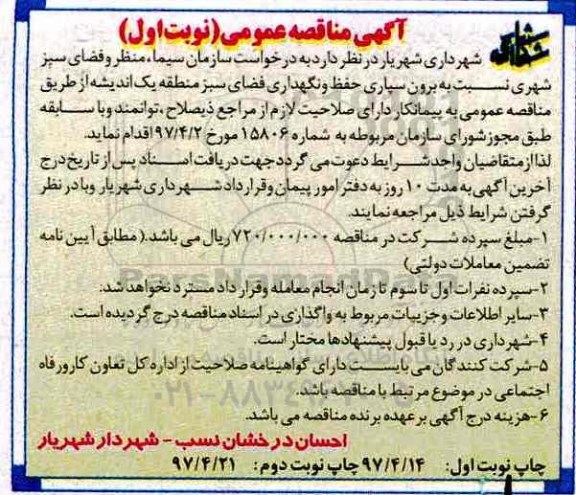 آگهی مناقصه عمومی (نوبت اول)
شهرداری شهریار در نظر دارد به درخواست سازمان سیما، منظر و فضای سبز
شهری نسبت به برون سپاری حفظ و نگهداری فضای سبز منطقه یک اندیشه از طریق
مناقصه عمومی به پیمانکار دارای صلاحیت لازم از مراجع ذیصلاح ، توانمند و با سابقه
طبق مجوز شورای سازمان مربوطه به شماره ۱۵۸۰۶ مورخ ۹۷/۴/۲ اقدام نماید.
لذا از متقاضیان واجد شرایط دعوت می گردد جهت دریافت اسناد پس از تاریخ درج
آخرین آگهی به مدت ۱۰ روز به دفتر امور پیمان و قرارداد شهرداری شهریار و با در نظر
گرفتن شرایط ذیل مراجعه نمایند.
۱-مبلغ سپرده شرکت در مناقصه ۷۲۰/۰۰۰/۰۰۰ ریال می باشد.( مطابق آیین نامه
تضمین معاملات دولتی)
۲-سپرده نفرات اول تا سوم تا زمان انجام معامله و قرارداد مسترد نخواهد شد.
۳-سایر اطلاعات و جزییات مربوط به واگذاری در اسناد مناقصه درج گردیده است.
۴-شهرداری در رد یا قبول پیشنهادها مختار است.
۵-شرکت کنندگان می بایست دارای گواهینامه صلاحیت از اداره کل تعاون کار و رفاه
اجتماعی در موضوع مرتبط با مناقصه باشد.
۶-هزینه درج آگهی بر عهده برنده مناقصه می باشد.
احسان درخشان نسب - شهردار شهریار
چاپ نوبت اول: ۹۷/۴/۱۴ چاپ نوبت دوم: ۹۷/۴/۲۱
ParsNamadData